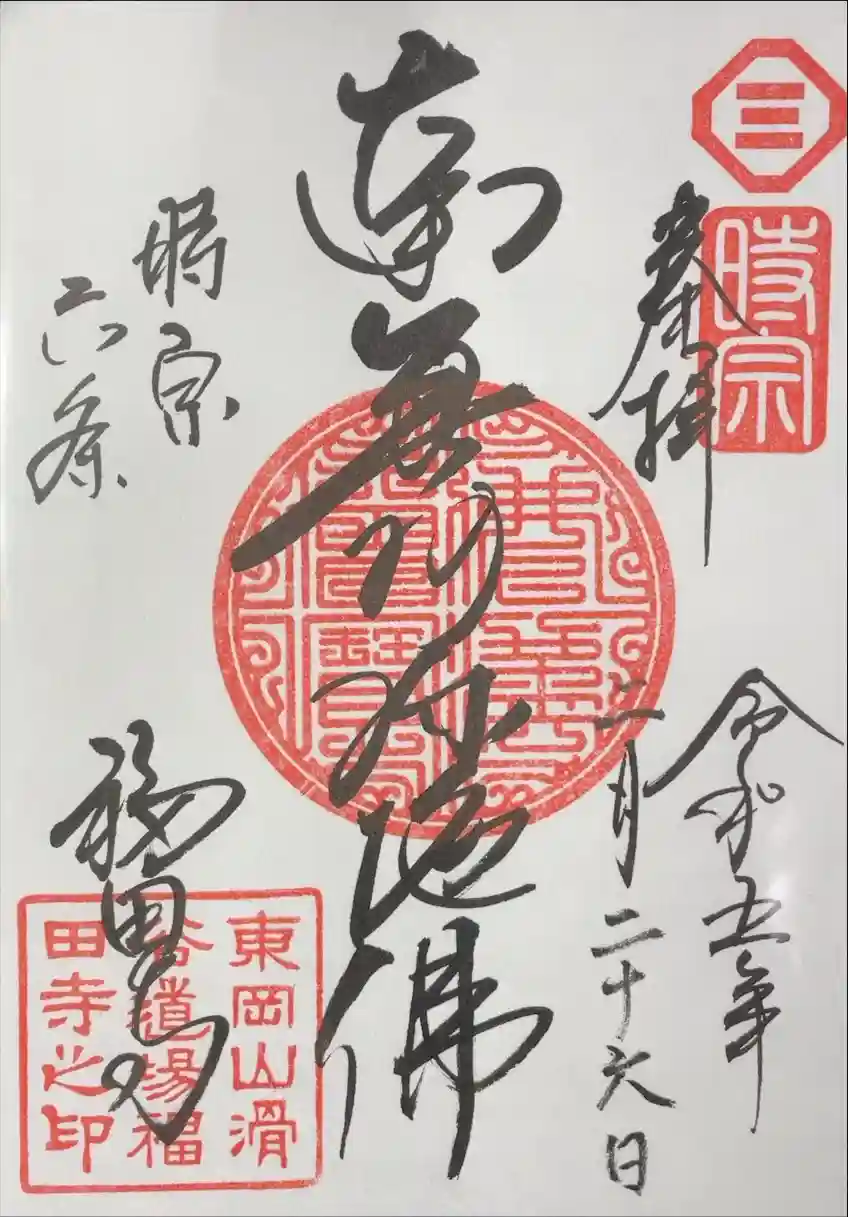 時宗
奉拝
令和五年
二月二十六日
南無阿弥陀佛
時宗
六条
福田寺
東岡山滑
谷道場福
田寺之印